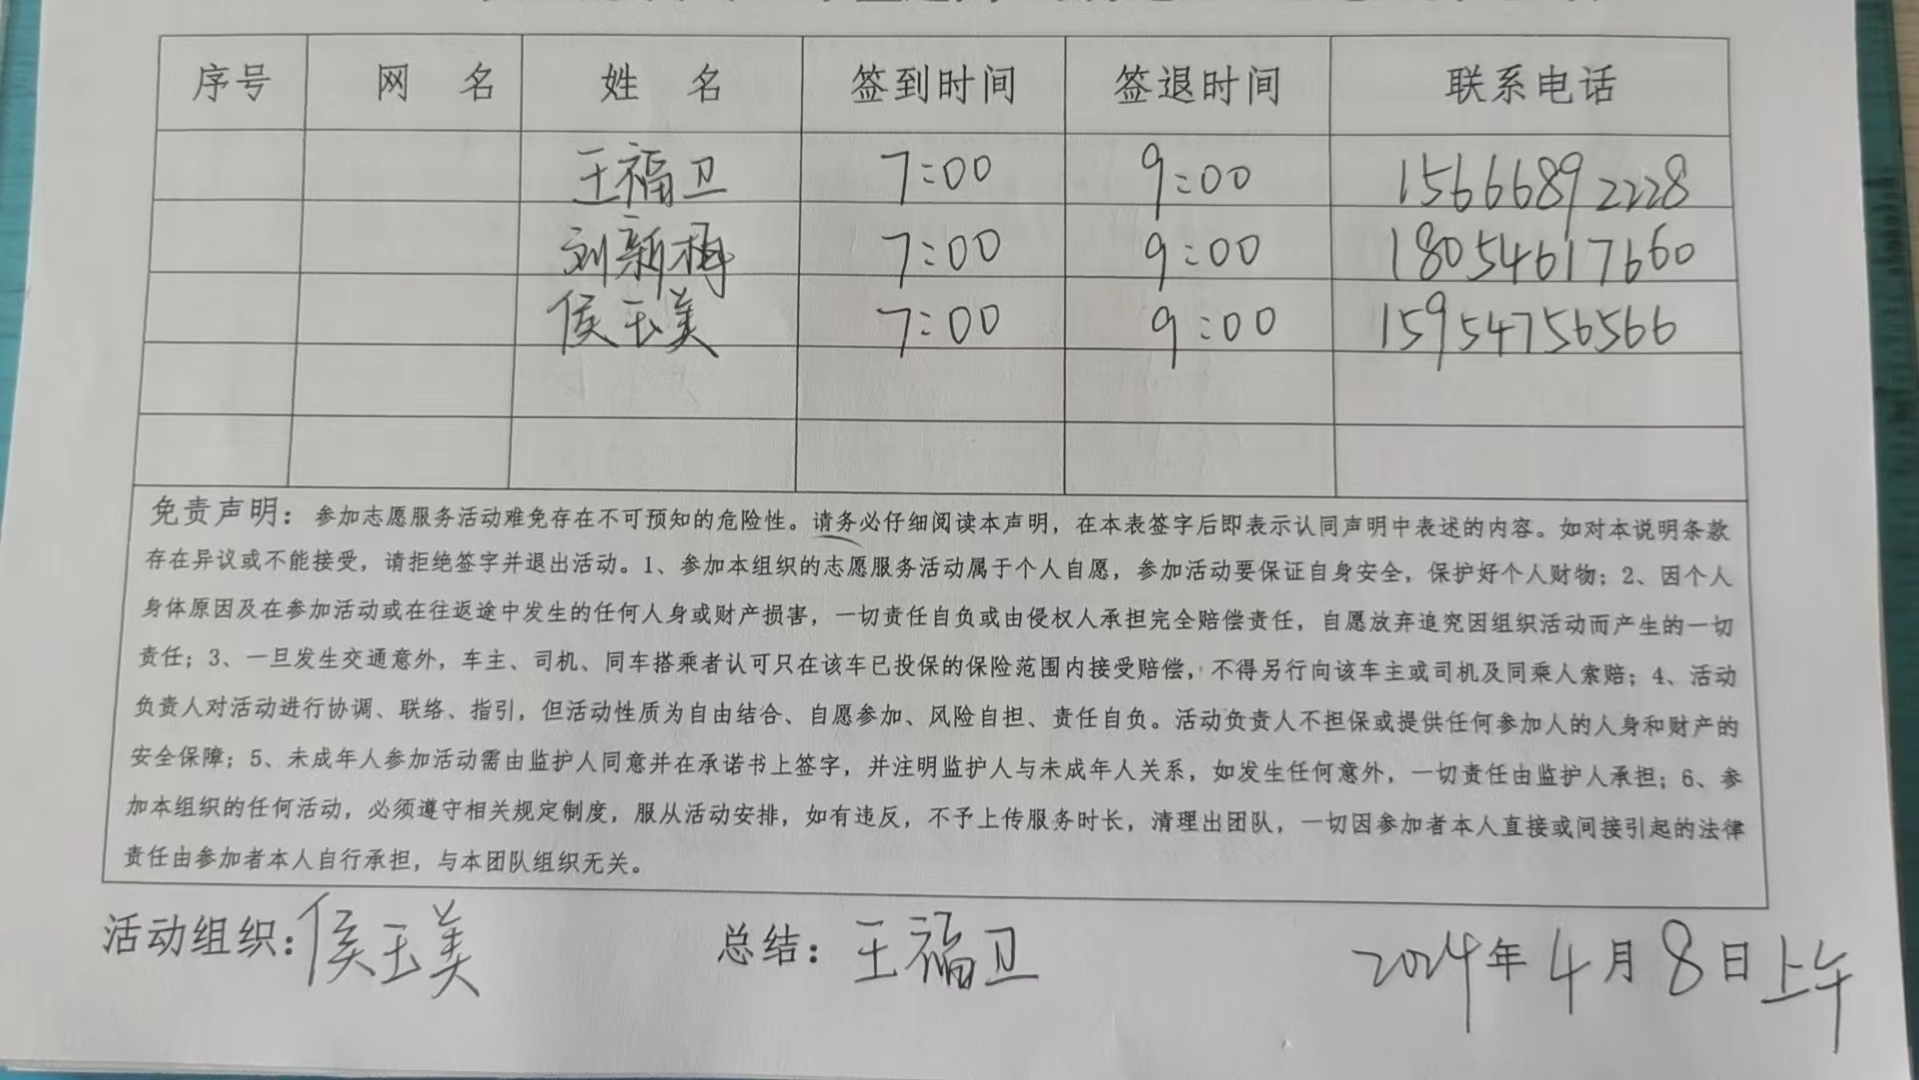 序号 网 名 姓 名 签到时间 签退时间 联系电话
王福卫 7:00 9:00 15666892228
刘新梅 7:00 9:00 18054617660
侯玉美 7:00 9:00 15954756566
免责声明：参加志愿服务活动难免存在不可预知的危险性。请务必仔细阅读本声明，在本表签字后即表示认同声明中表述的内容。如对本说明条款
存在异议或不能接受，请拒绝签字并退出活动。1、参加本组织的志愿服务活动属于个人自愿，参加活动要保证自身安全，保护好个人财物；2、因个人
身体原因及在参加活动或在往返途中发生的任何人身或财产损害，一切责任自负或由侵权人承担完全赔偿责任，自愿放弃追究因组织活动而产生的一切
责任；3、一旦发生交通意外，车主、司机、同车搭乘者认可只在该车已投保的保险范围内接受赔偿，不得另行向该车主或司机及同乘人索赔；4、活动
负责人对活动进行协调、联络、指引，但活动性质为自由结合、自愿参加、风险自担、责任自负。活动负责人不担保或提供任何参加人的人身和财产的
安全保障；5、未成年人参加活动需由监护人同意并在承诺书上签字，并注明监护人与未成年人关系，如发生任何意外，一切责任由监护人承担；6、参
加本组织的任何活动，必须遵守相关规定制度，服从活动安排，如有违反，不予上传服务时长，清理出团队，一切因参加者本人直接或间接引起的法律
责任由参加者本人自行承担，与本团队组织无关。
活动组织：侯玉美 总结：王福卫 2024年4月8日上午